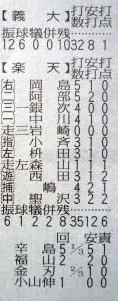 【義大】打安打
数点
振球犠併残
12 6 0 0 10 32 8 1
【楽天】打安打
数点
右 岡島 5 1 0
二 阿部 5 2 0
三一 銀次 4 0 0
一 中川 4 0 1
走三 岩崎 0 0 0
指 小斉 3 1 0
左 枡田 3 1 1
走左 森山 1 1 0
遊 西田 3 1 2
捕 嶋 4 2 1
中 聖沢 3 2 2
振球犠併残
6 1 2 2 8 35 12 6
回 安責
辛島 5 1/3 5 1
福山 2/3 2 0
金刃 2/3 1 0
小山伸 1 0 0